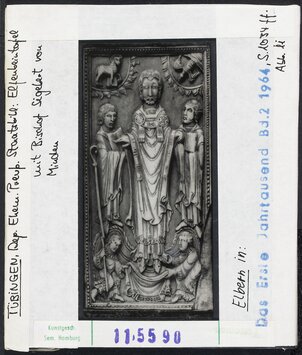 TÜBINGEN, Dep. Ehem. Preuß. Staatsbibl.: Elfenbeintafel
mit Bischof Sigebert von
Minden
Elbern in:
Das Erste Jahrtausend Bd.2 1964, S.1084 ff:
Abb. li
Kunstgesch.
Sem. Hamburg
115590